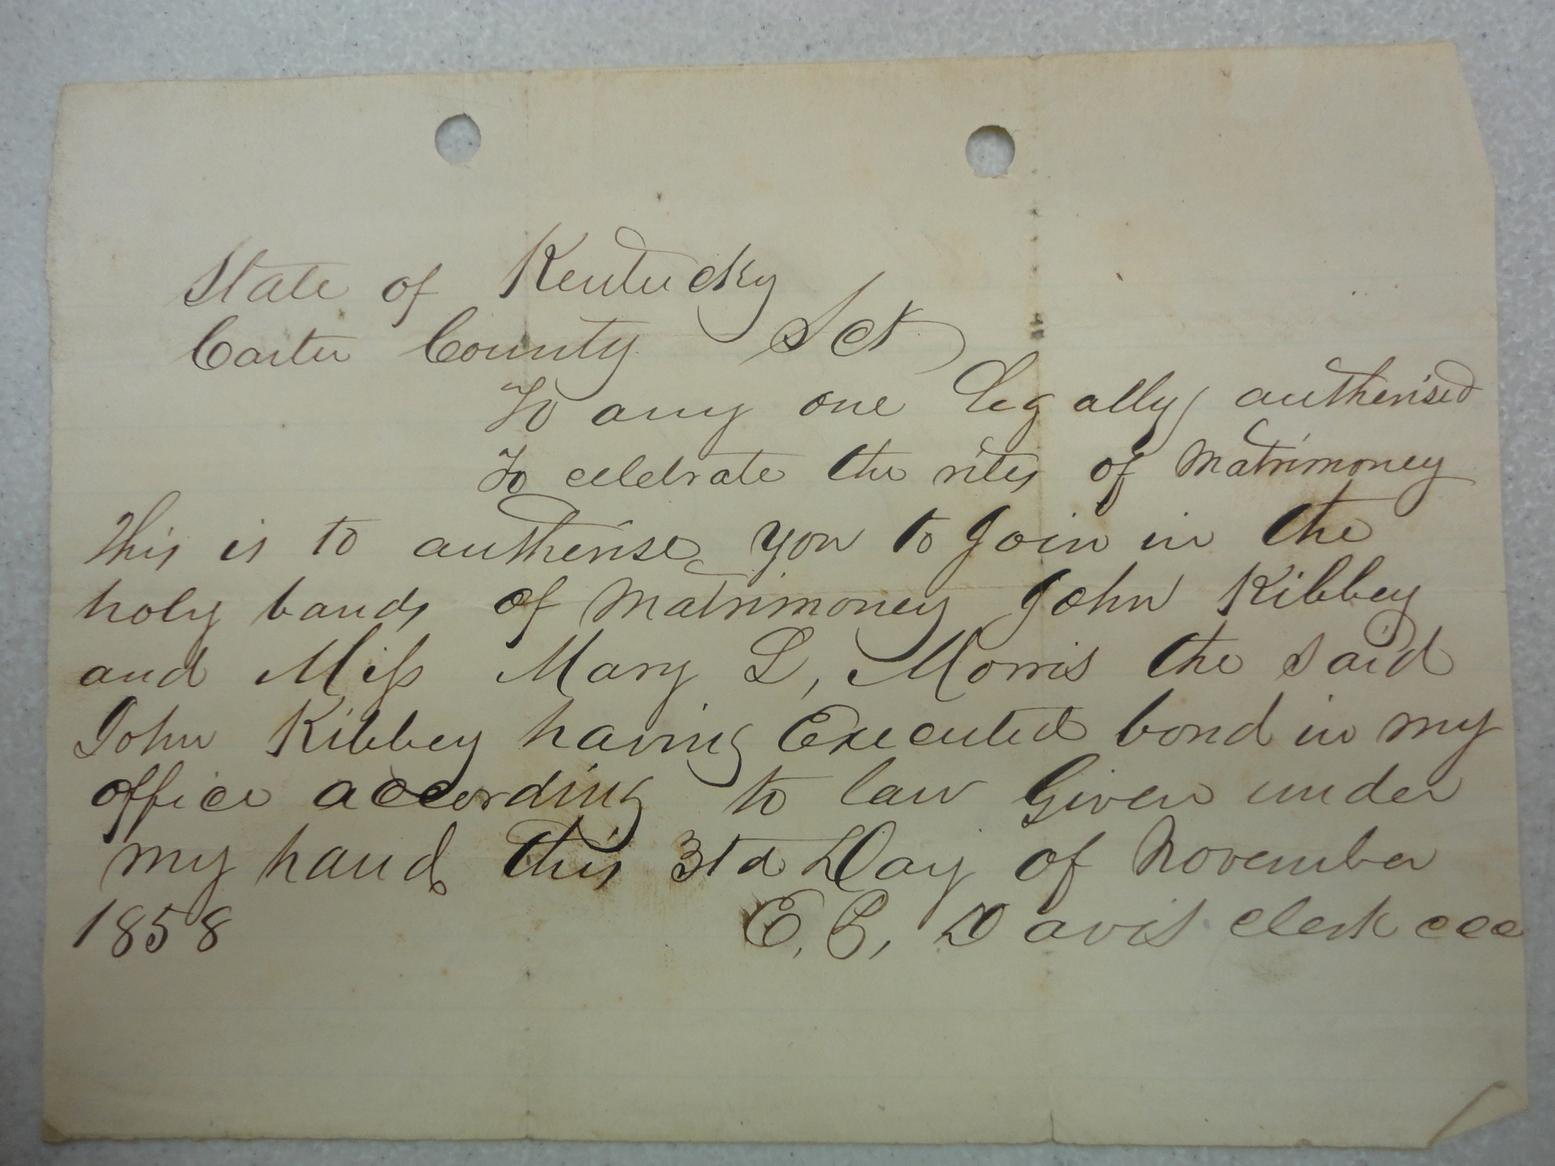 State of Kentucky
Carter County Sct
To any one legally authorised
To celebrate the rites of Matrimoney
This is to autherise you to Join in the
holy bands of Matrimoney John Kibbey
and Miss Mary L, Morris the said
John Kibbey having Executed bond in my
office according to law Given under
my hand this 3rd Day of November
1858 E, B, Davis clerk ccc